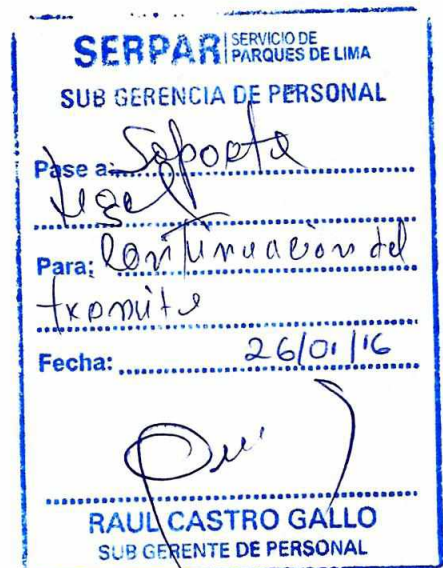 SERPAR SERVICIO DE PARQUES DE LIMA
SUB GERENCIA DE PERSONAL
Pase a: Soporte
Legal
Para: Continuacion del
tramite
Fecha: 26/01/16
RAUL CASTRO GALLO
SUB GERENTE DE PERSONAL